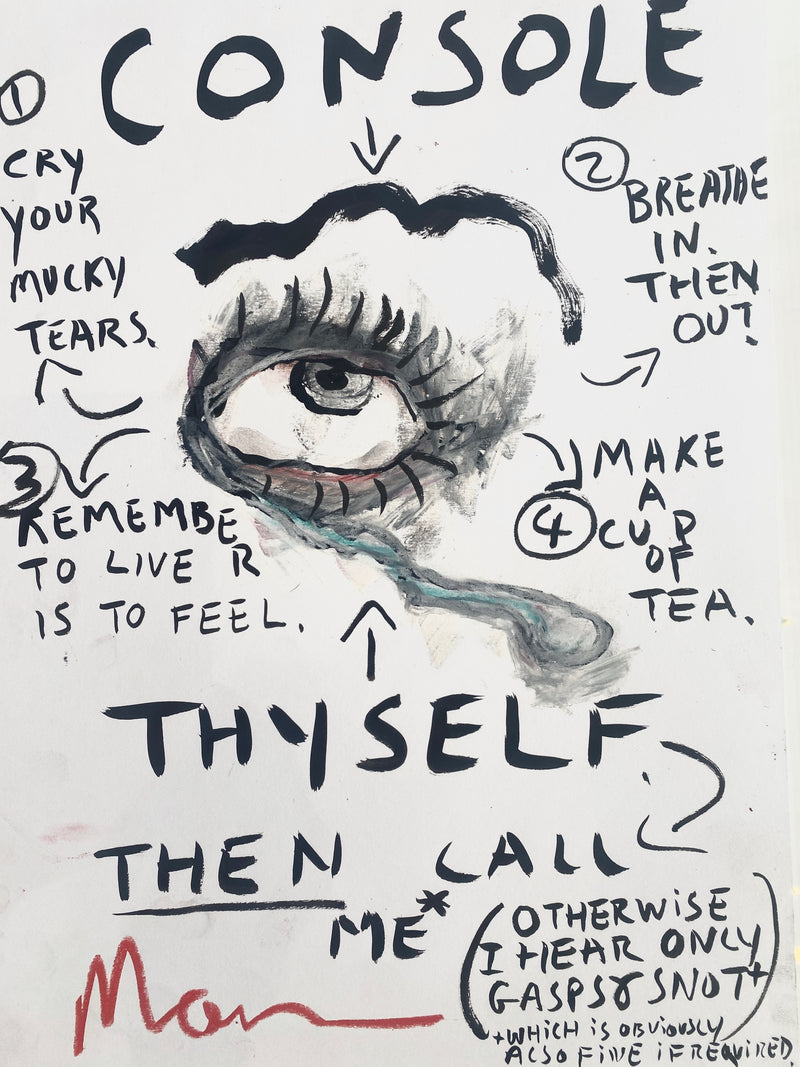 CONSOLE
①
CRY
YOUR
MUCKY
TEARS.
②
BREATHE
IN.
THEN
OUT.
③
REMEMBER
TO LIVE
IS TO FEEL.
④
MAKE
A
CUP
OF
TEA.
THYSELF.
THEN CALL
ME*
(OTHERWISE
I HEAR ONLY
GASPS & SNOT+)
+WHICH IS OBVIOUSLY
ALSO FINE IF REQUIRED.
Mon